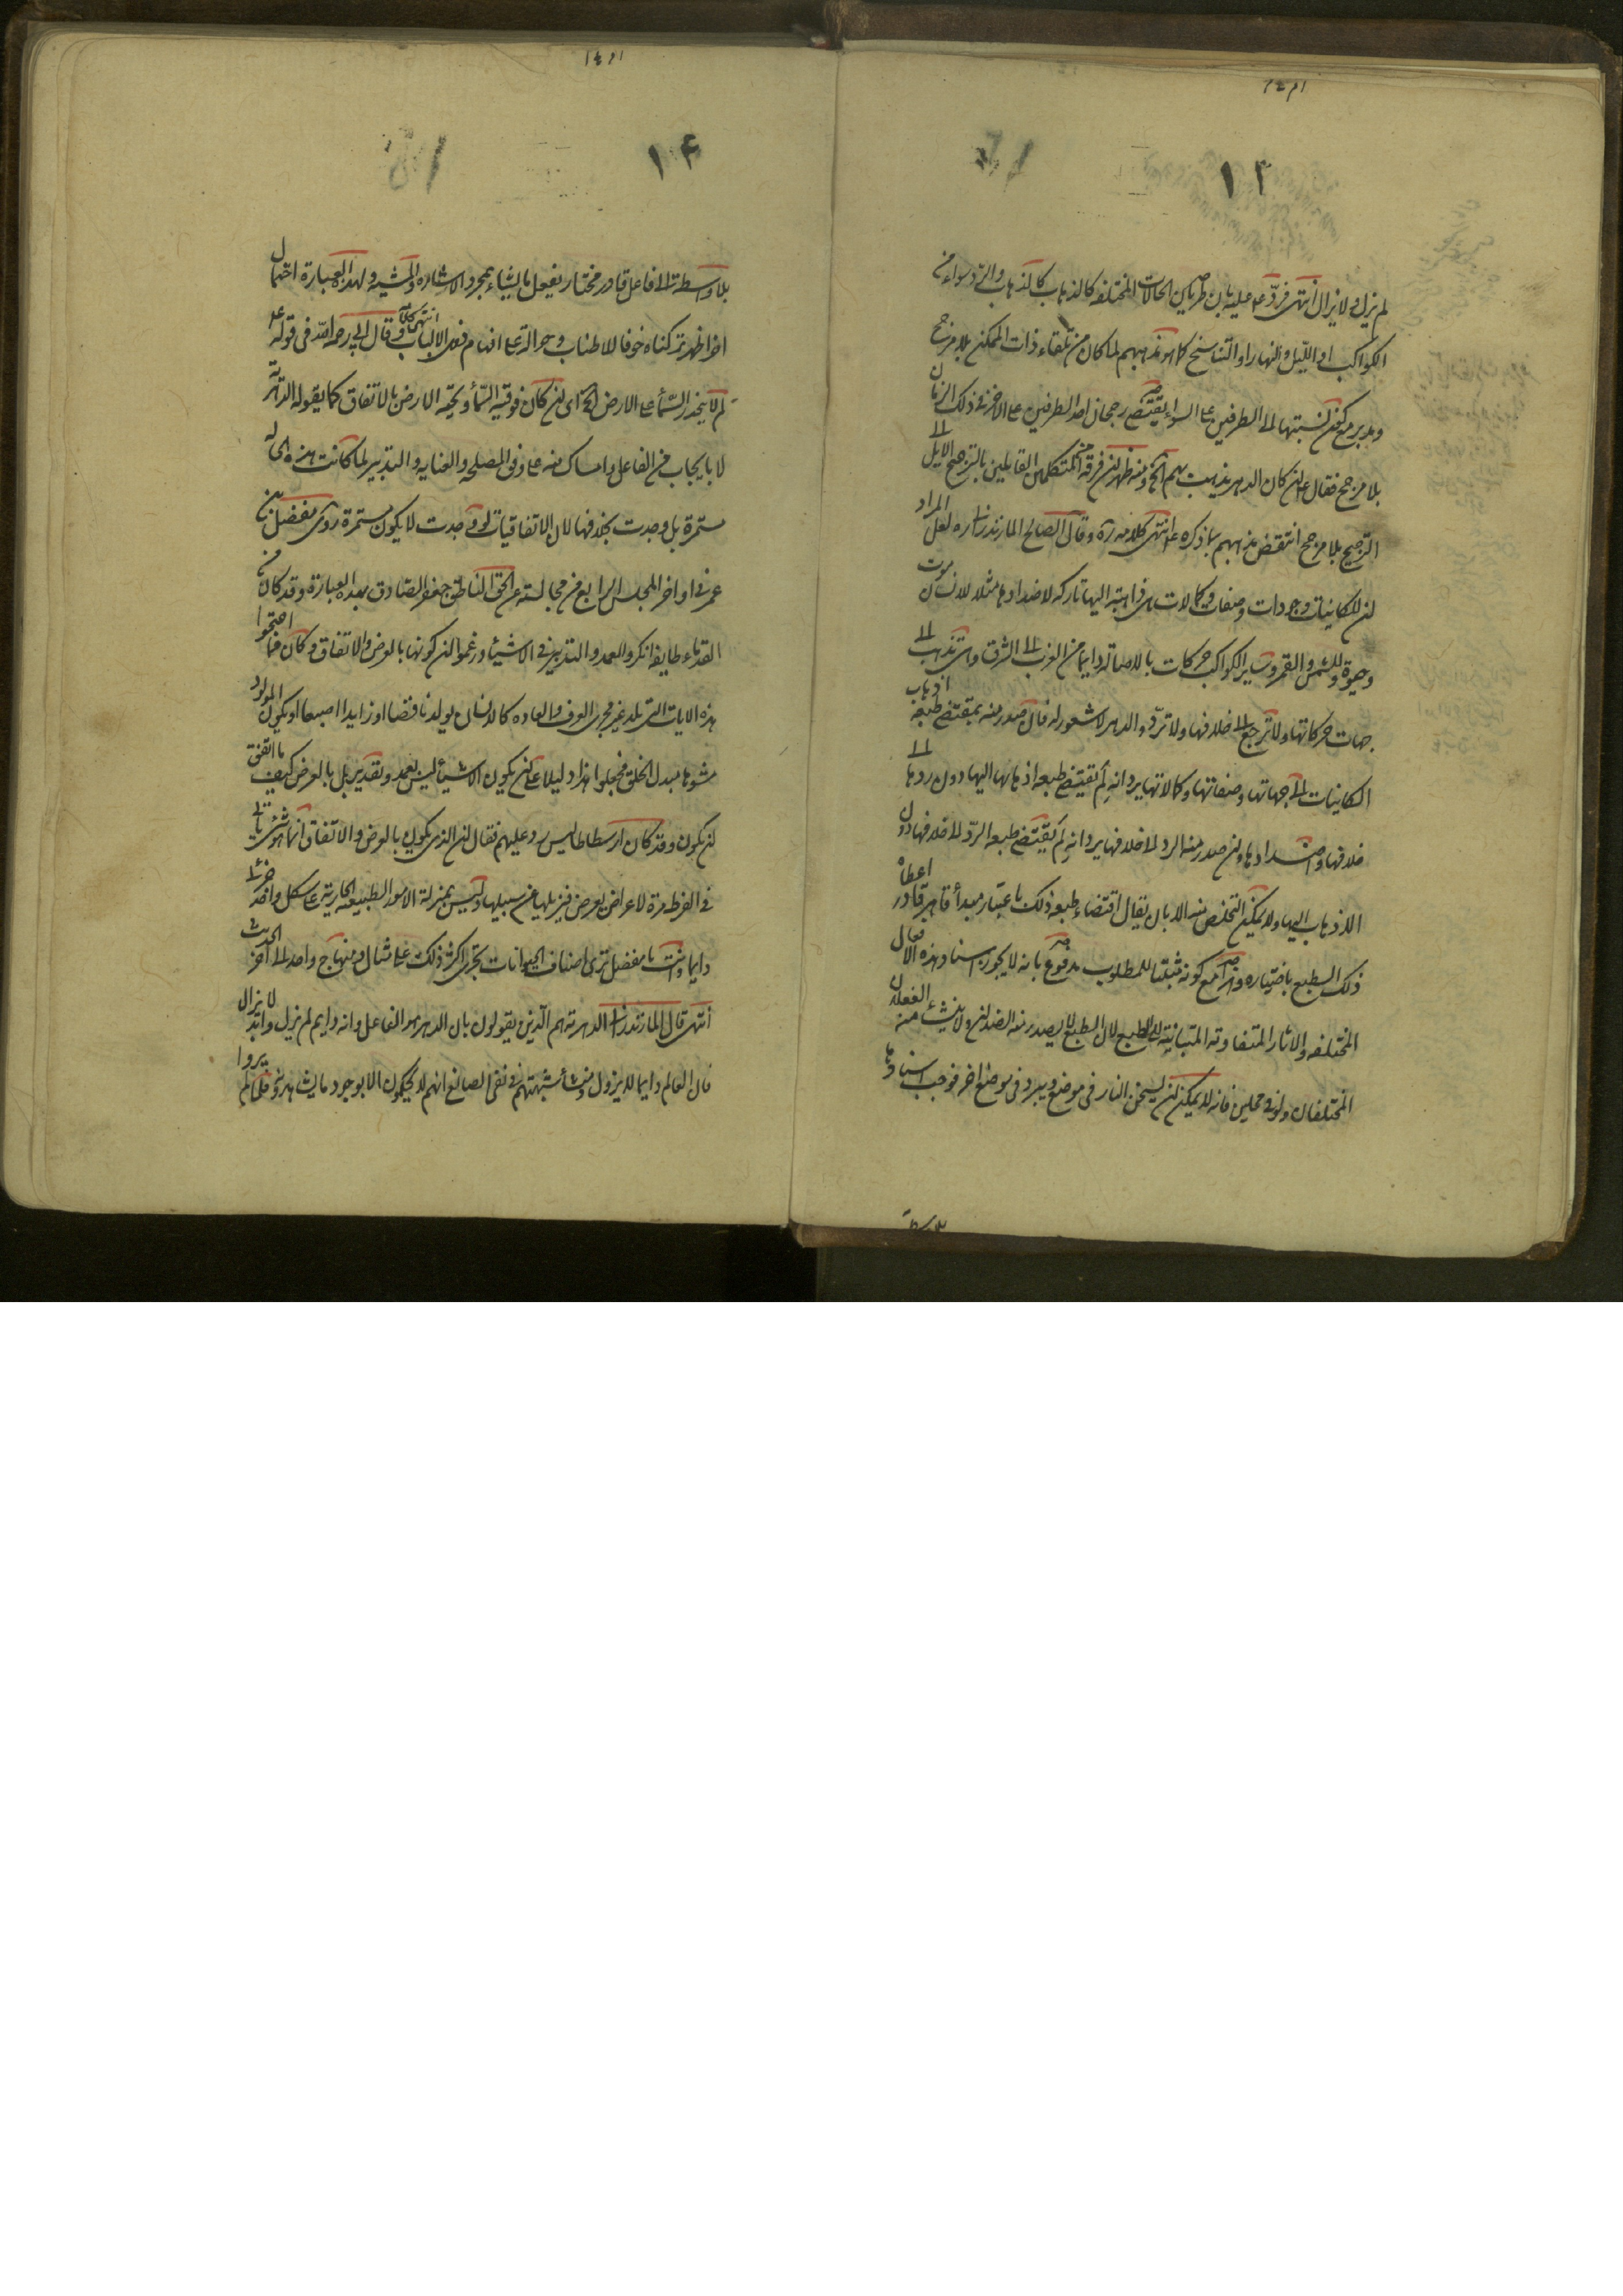 ١٣
لم يزل ولا يزال انتهى فردّ ع عليه بان طريان الحالات المختلفه كالذهاب كالذهاب والردّ سواء من
الكواكب او الليل والنهار او التناسخ كما هو مذهبهم لما كان من تلقاء ذات الممكن بلا مرجح
ومدبر مع كون نسبتها الى الطرفين على السواء يقتضي رجحان احد الطرفين على الاخر في ذلك الزمان
بلا مرجح فقال ع ان كان الدهر يذهب بهم الخ ومنه ظهر ان فرقة من المتكلمين القايلين بالترجيح
الترجيح بلا مرجح انتقض مذهبهم بما ذكره ع انتهى كلامه ره وقال الصالح المازندراني ره لعل المراد
ان للكاينات وجودات وصفات وكمالات هي ذاهبة اليها تاركه لاضدادها مثلا للانسان موت
وحيوة وللشمس والقمر وساير الكواكب حركات بالاصالة دايما من الغرب الى الشرق وهي تذهب الى
جهات حركاتها ولا ترجع الى خلافها ولا تردّ والدهر لا شعور له فان صدر منه بمقتضى طبعه اذهاب
الكاينات الى جهاتها وصفاتها وكمالاتها يرد انه لم يقتضي طبعه اذهابها اليها دون ردها الى
خلافها واضدادها وان صدر منه الرد الى خلافها يرد انه لم يقتضي طبعه الردّ الى خلافها دون
الاذهاب اليها ولا يمكن التخلص منه الا بان يقال اقتضاء طبعه ذلك باعتبار مبدأ قاهر قادر اعطاه
ذلك الطبع باختياره وهذا مع كونه مثبتا للمطلوب مدفوع بانه لا يجوز اسناد هذه الافعال
المختلفه والاثار المتفاوته المتباينة الى الطبع لان الطبع لا يصدر منه الضدان ولا ينشاء منه الفعلان
المختلفان ولو في محلين فانه لا يمكن ان يسخن النار في موضع ويبرد في موضع اخر فوجب اسنادها
بلا واسطة
١۴
بلا واسطة الى فاعل قادر مختار يفعل ما يشاء بمجرد الاشاره والمشيه ولهذه العبارة احتمال
اخر اظهر تركناه خوفا للاطناب وحوالة على افهام ذوى الالباب انتهى كلامه وقال ابي رحمه الله في قوله ع
لم لا ينحدر السماء على الارض الخ اى ان كان فوقيه السماء وتحتيه الارض بالاتفاق كما يقوله الدهريه
لا بايجاب من الفاعل وامساك منه على وفق المصلحه والعنايه والتدبير لما كانت هذه الحاله
مستمرة بل وجدت بخلافها لان الاتفاقيات لو وجدت لا يكون مستمرة روى مفضل بن
عمر في اواخر المجلس الرابع من مجالسته عن الحق الناطق جعفر الصادق بهذه العبارة وقد كان من
القدماء طايفه انكروا العمد والتدبير في الاشياء وزعموا ان كونها بالعرض والاتفاق وكان مما احتجوا
هذه الايات التي تلد غير مجرى العرف والعاده كالانسان يولد ناقصا او زايدا اصبعا او يكون المولود
مشوها مبدل الخلق فجعلوا هذا دليلا على ان يكون الاشياء ليس بعمد وتقدير بل بالعرض كيف ما اتفق
ان يكون وقد كان ارسطاطاليس رد عليهم فقال ان الذي يكون بالعرض والاتفاق انما هو شئ ياتي
في الفرط مرة لاعراض يعرض فيزيلها عن سبيلها وليس بمنزلة الامور الطبيعيه الجارية على شكل واحد جريا
دايما وانت يا مفضل ترى اصناف الحيوانات يجرى اكثر ذلك على مثال ومنهاج واحد الى اخر الحديث
انتهى قال المازندراني الدهرية هم الذين يقولون بان الدهر هو الفاعل وانه دايم لم يزل وابد لا يزال
فان العالم دايما لا يزول ومنشأ شبهتهم في نفى الصانع انهم لا يحكمون الا بوجود ما يشاهدونه فلما لم يروا